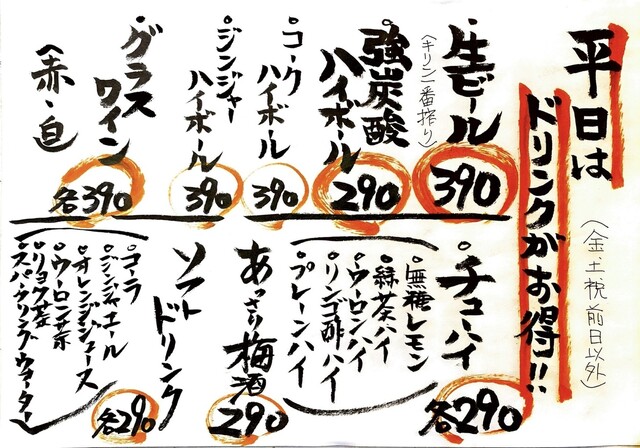 平日は
ドリンクがお得!!
(金、土、祝前日以外)
生ビール
(キリン一番搾り)
390
強炭酸
ハイボール
290
コーク
ハイボール
390
ジンジャー
ハイボール
390
グラス
ワイン
(赤・白)
各390
チューハイ
無糖レモン
緑茶ハイ
ウーロンハイ
リンゴ酢ハイ
プレーンハイ
各290
あっさり梅酒
290
ソフト
ドリンク
コーラ
ジンジャエール
オレンジジュース
ウーロン茶
リョク茶
スパークリングウォーター
各290